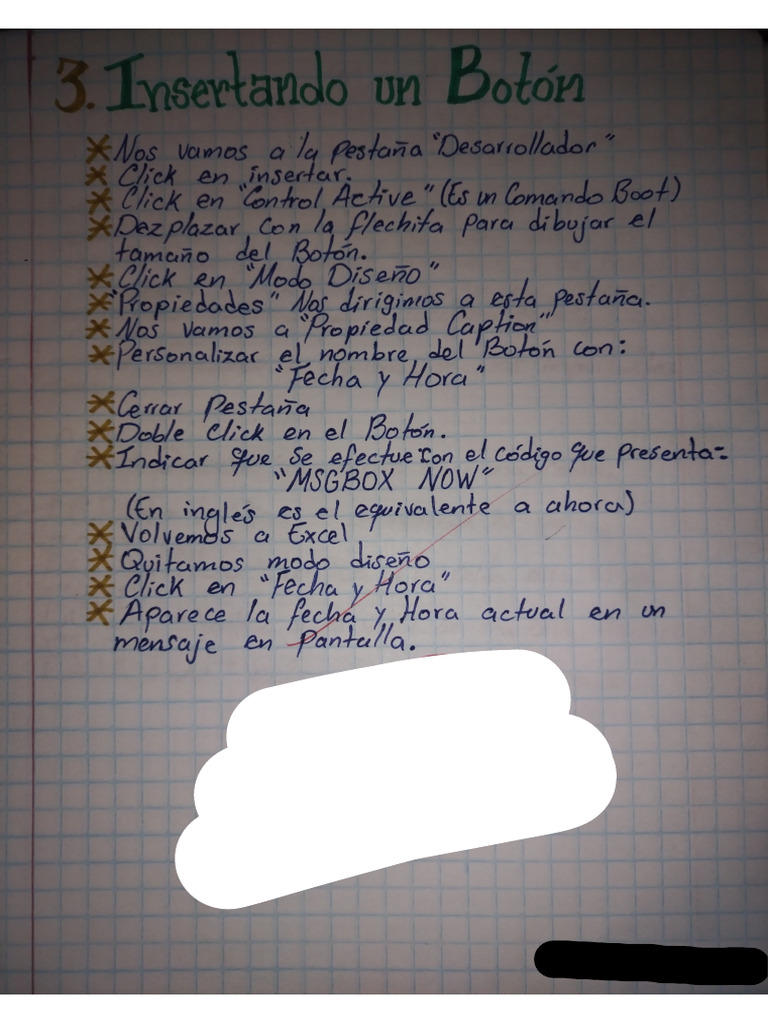 3. Insertando un Botón
* Nos vamos a la pestaña "Desarrollador"
* Click en insertar.
* Click en "Control Active" (Es un Comando Boot)
* Dezplazar con la flechita para dibujar el
tamaño del Botón.
* Click en "Modo Diseño"
* "Propiedades" Nos dirigimos a esta pestaña.
* Nos vamos a "Propiedad Caption"
* Personalizar el nombre del Botón con:
"Fecha y Hora"
* Cerrar Pestaña
* Doble Click en el Botón.
* Indicar que se efectue con el código que presenta:
"MSGBOX NOW"
(En inglés es el equivalente a ahora)
* Volvemos a Excel
* Quitamos modo diseño
* Click en "Fecha y Hora"
* Aparece la fecha y Hora actual en un
mensaje en Pantalla.